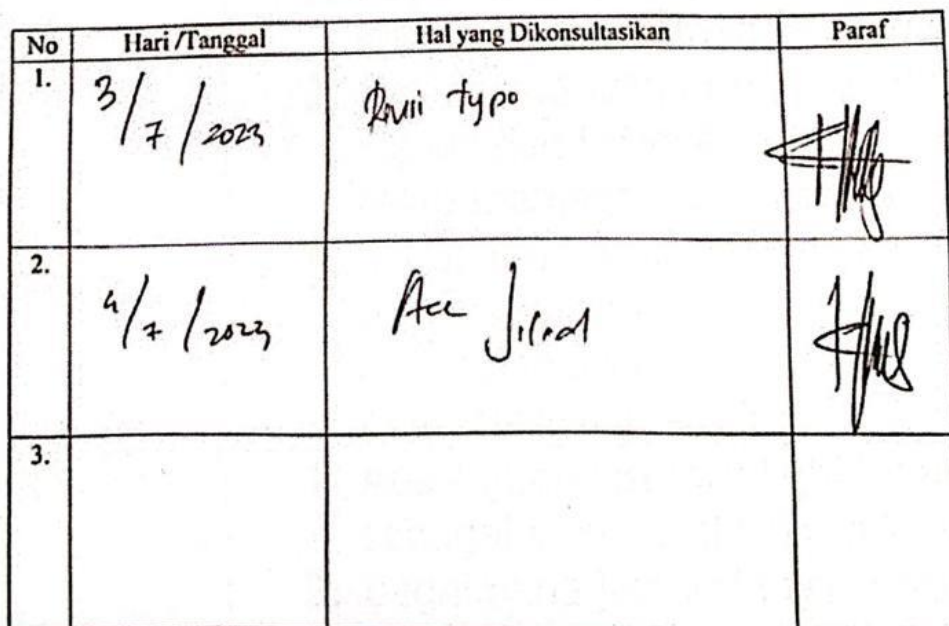 No Hari /Tanggal Hal yang Dikonsultasikan Paraf
1. 3/7/2023 Revisi typo
2. 4/7/2023 Acc Jilid
3.